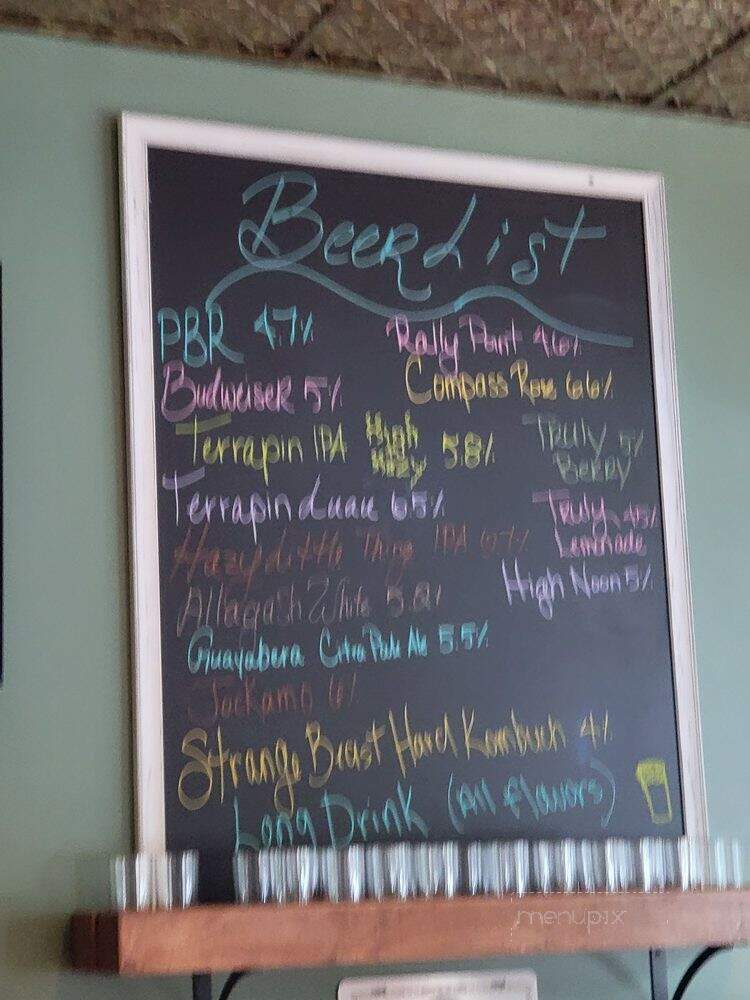 Beer List
PBR 4.7%
Rally Point 4.6%
Budweiser 5%
Compass Rose 6.6%
Terrapin IPA High & Hazy 5.8%
Truly Berry 5%
Terrapin Luau 6.5%
Truly Lemonade
Hazy Little Thing IPA 6.7%
High Noon 5%
Allagash White
Guayabera Citra Pale Ale 5.5%
Jockamo 6%
Strange Beast Hard Kombuch 4%
Long Drink (All flavors)
menupix